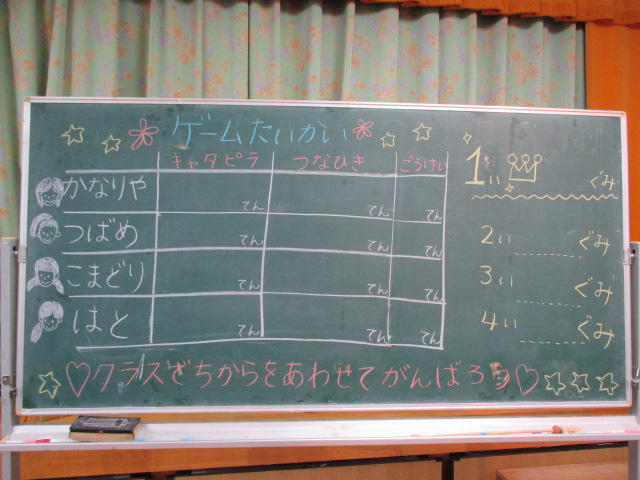 ゲームたいかい
キャタピラ つなひき ごうけい
かなりや てん てん てん
つばめ てん てん てん
こまどり てん てん てん
はと てん てん てん
1い ぐみ
2い ぐみ
3い ぐみ
4い ぐみ
クラスでちからをあわせてがんばろう